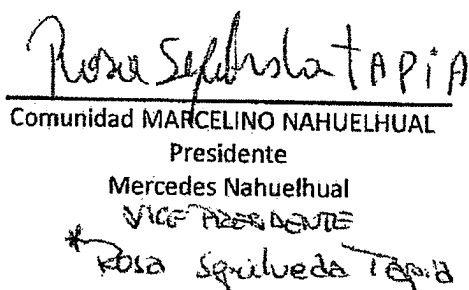 Rosa Sepulveda TAPIA
Comunidad MARCELINO NAHUELHUAL
Presidente
Mercedes Nahuelhual
VICE PRESIDENTE
* Rosa Sepulveda Tapia